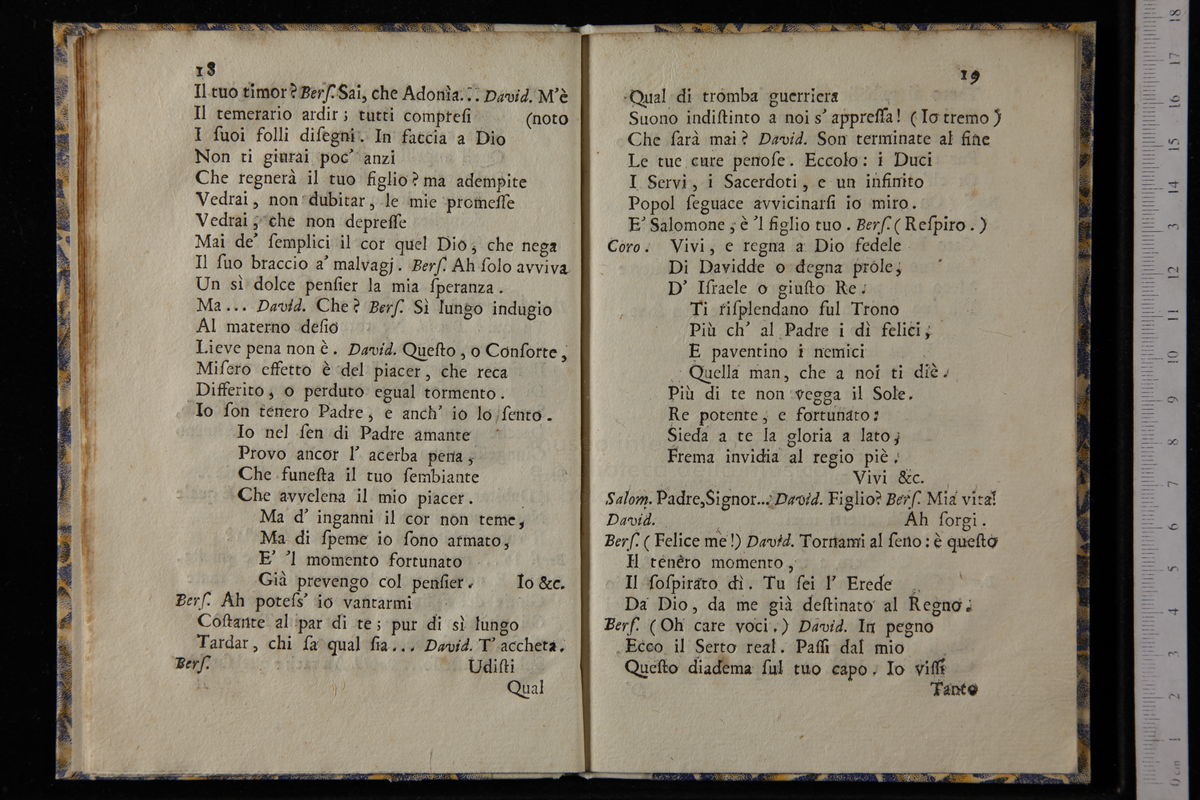 18
Il tuo timor? Berſ. Sai, che Adonìa... David. M'è
Il temerario ardir; tutti compreſi (noto
I ſuoi folli diſegni. In faccia a Dio
Non ti giurai poc' anzi
Che regnerà il tuo figlio? ma adempite
Vedrai, non dubitar, le mie promeſſe
Vedrai, che non depreſſe
Mai de' ſemplici il cor quel Dio, che nega
Il ſuo braccio a' malvagj. Berſ. Ah ſolo avviva
Un sì dolce penſier la mia ſperanza.
Ma... David. Che? Berſ. Sì lungo indugio
Al materno deſio
Lieve pena non è. David. Queſto, o Conſorte,
Miſero effetto è del piacer, che reca
Differito, o perduto egual tormento.
Io ſon tenero Padre, e anch' io lo ſento.
Io nel ſen di Padre amante
Provo ancor l' acerba pena,
Che funeſta il tuo ſembiante
Che avvelena il mio piacer.
Ma d' inganni il cor non teme,
Ma di ſpeme io ſono armato,
E' 'l momento fortunato
Già prevengo col penſier. Io &c.
Berſ. Ah poteſs' io vantarmi
Coſtante al par di te; pur di sì lungo
Tardar, chi ſa qual ſia... David. T' accheta.
Berſ. Udiſti
Qual
19
Qual di tromba guerriera
Suono indiſtinto a noi s' appreſſa! (Io tremo)
Che ſarà mai? David. Son terminate al fine
Le tue cure penoſe. Eccolo: i Duci
I Servi, i Sacerdoti, e un infinito
Popol ſeguace avvicinarſi io miro.
E' Salomone, è 'l figlio tuo. Berſ. (Reſpiro.)
Coro. Vivi, e regna a Dio fedele
Di Davidde o degna prole,
D' Iſraele o giuſto Re.
Ti riſplendano ſul Trono
Più ch' al Padre i dì felici,
E paventino i nemici
Quella man, che a noi ti diè.
Più di te non vegga il Sole.
Re potente, e fortunato:
Sieda a te la gloria a lato,
Frema invidia al regio piè.
Vivi &c.
Salom. Padre, Signor... David. Figlio? Berſ. Mia vita!
David. Ah ſorgi.
Berſ. (Felice me!) David. Tornami al ſeno: è queſto
Il tenero momento,
Il ſoſpirato dì. Tu ſei l' Erede
Da Dio, da me già deſtinato al Regno.
Berſ. (Oh care voci.) David. In pegno
Ecco il Serto real. Paſſi dal mio
Queſto diadema ſul tuo capo. Io viſſi
Tanto
0 cm 1 2 3 4 5 6 7 8 9 10 11 12 13 14 15 16 17 18